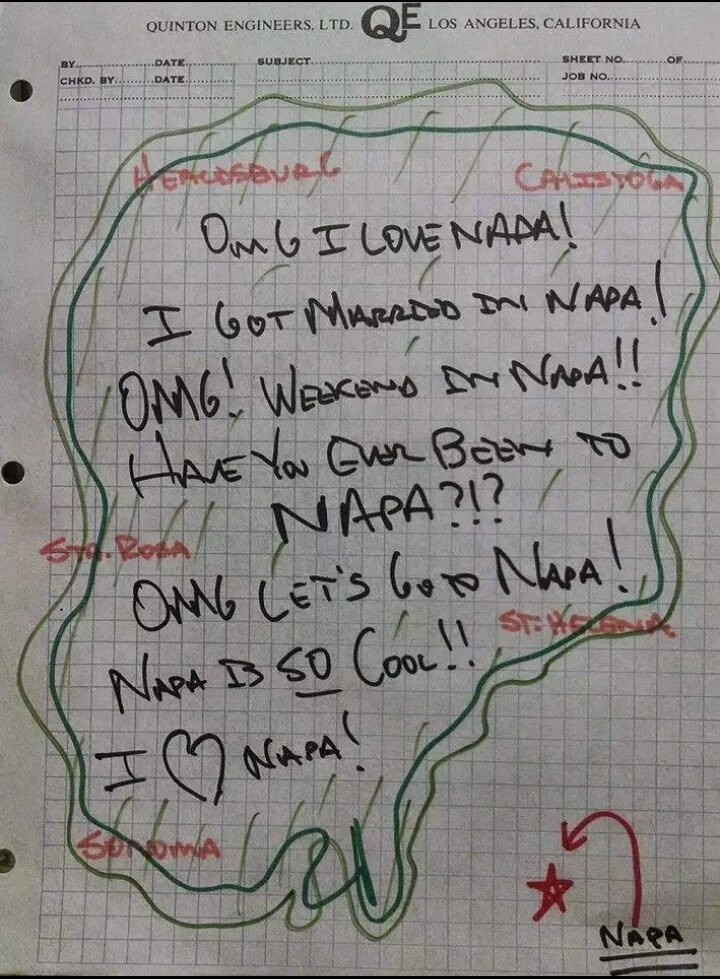 QUINTON ENGINEERS, LTD. QE LOS ANGELES, CALIFORNIA
BY DATE SUBJECT SHEET NO. OF
CHKD. BY DATE JOB NO.
HEALDSBURG CALISTOGA
OMG I LOVE NAPA!
I GOT MARRIED IN NAPA!
OMG! WEEKEND IN NAPA!!
HAVE YOU EVER BEEN TO
NAPA?!?
STA. ROSA
OMG LET'S GO TO NAPA!
ST. HELENA
NAPA IS SO COOL!!
I ♡ NAPA!
SONOMA
NAPA